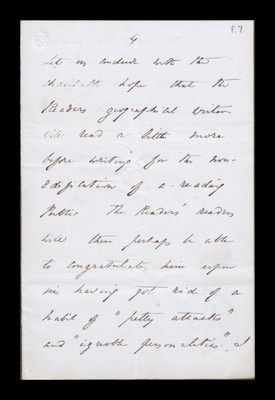 4
P.7
Let us conclude with the
charitable hope that the
Readers geographical writer
will read a little more
before writing for the non-
Edification of a reading
Public The Readers' readers
will then perhaps be able
to congratulate him upon
his having got rid of a
habit of "petty attacks"
and "ignoble personalities". I